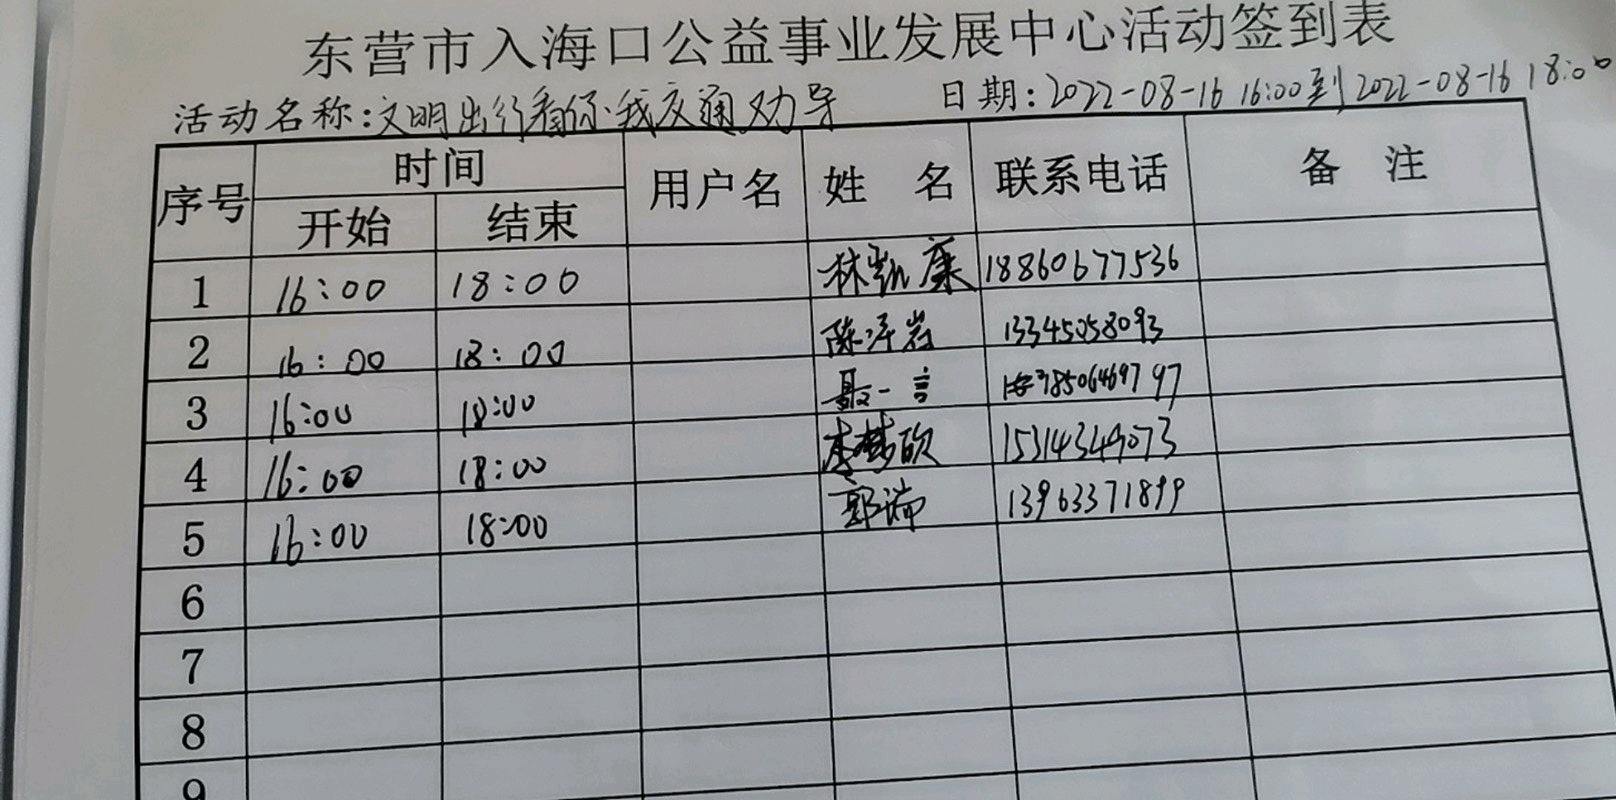 东营市入海口公益事业发展中心活动签到表
活动名称:文明出行看你我交通劝导 日期:2022-08-16 16:00到2022-08-16 18:00
序号 时间 用户名 姓 名 联系电话 备 注
开始 结束
1 16:00 18:00 林凯康 18860677536
2 16:00 18:00 陈泽岩 13345058093
3 16:00 18:00 聂一言
4 16:00 18:00 李梦欣 15314349073
5 16:00 18:00 郭瑞 13963371899
6
7
8
9